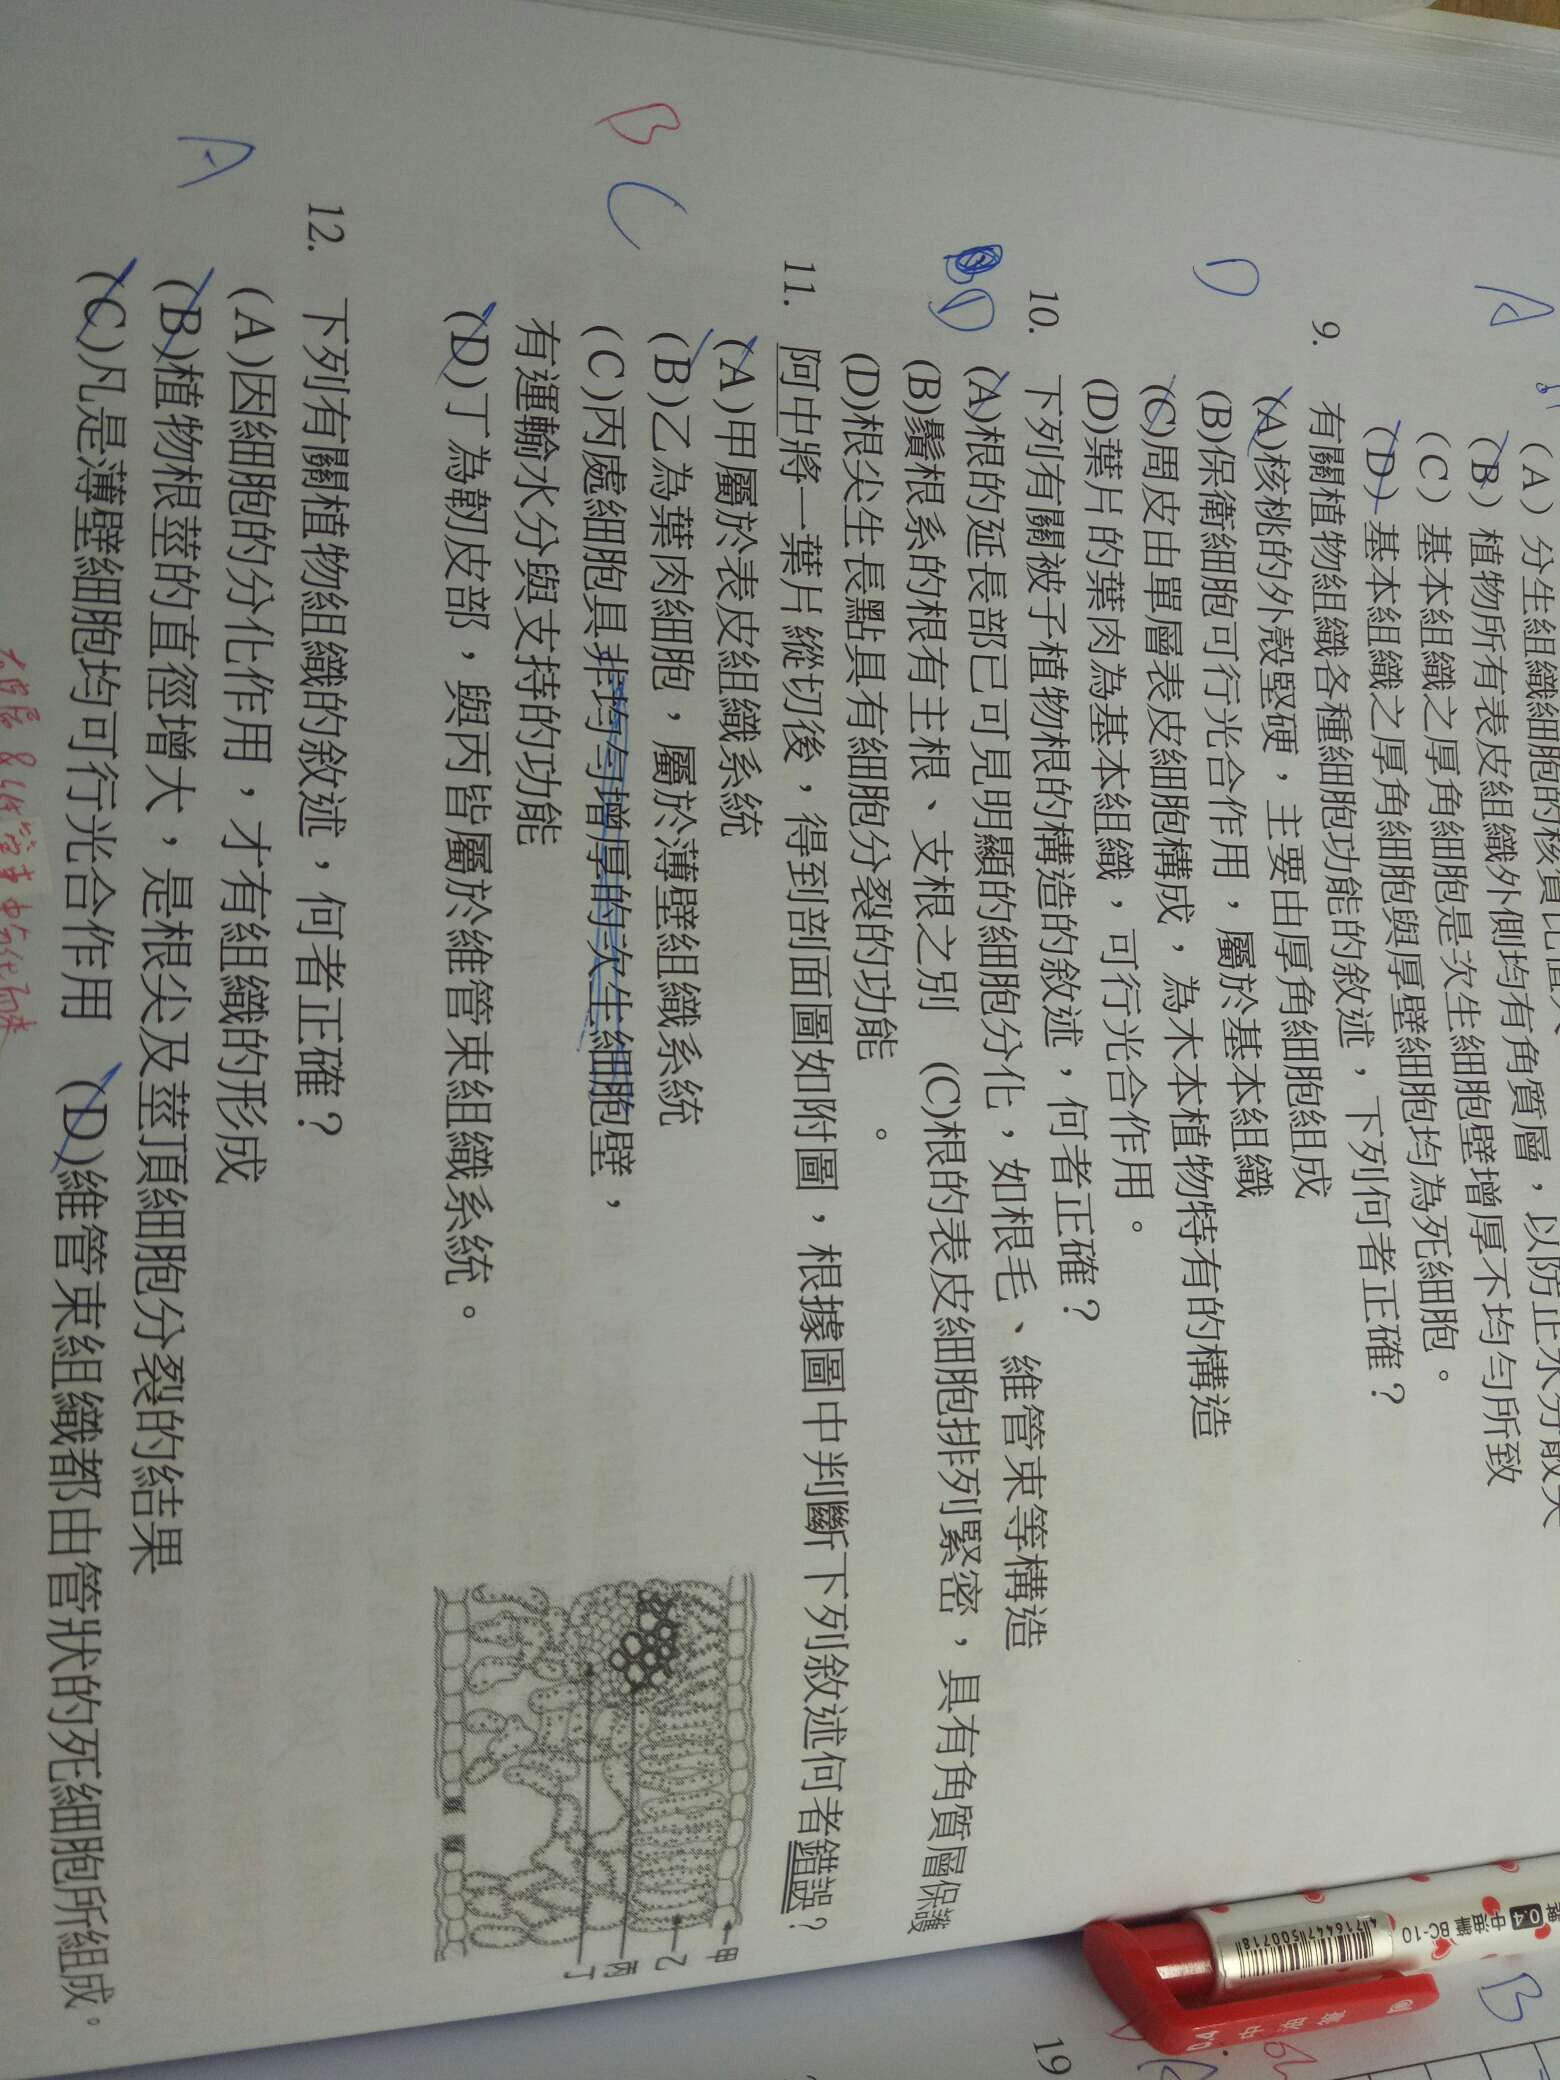 A
(A) 分生組織細胞的核質比值大
(B) 植物所有表皮組織外側均有角質層，以防止水分散失
(C) 基本組織之厚角細胞是次生細胞壁增厚不均勻所致
(D) 基本組織之厚角細胞與厚壁細胞均為死細胞。
D
9. 有關植物組織各種細胞功能的敘述，下列何者正確？
(A)核桃的外殼堅硬，主要由厚角細胞組成
(B)保衛細胞可行光合作用，屬於基本組織
(C)周皮由單層表皮細胞構成，為木本植物特有的構造
(D)葉片的葉肉為基本組織，可行光合作用。
D
10. 下列有關被子植物根的構造的敘述，何者正確？
(A)根的延長部已可見明顯的細胞分化，如根毛、維管束等構造
(B)鬚根系的根有主根、支根之別 (C)根的表皮細胞排列緊密，具有角質層保護
(D)根尖生長點具有細胞分裂的功能。
B C
11. 阿中將一葉片縱切後，得到剖面圖如附圖，根據圖中判斷下列敘述何者錯誤？
(A)甲屬於表皮組織系統
(B)乙為葉肉細胞，屬於薄壁組織系統
(C)丙處細胞具非均勻增厚的次生細胞壁，
有運輸水分與支持的功能
(D)丁為韌皮部，與丙皆屬於維管束組織系統。
甲
乙
丙
丁
A
12. 下列有關植物組織的敘述，何者正確？
(A)因細胞的分化作用，才有組織的形成
(B)植物根莖的直徑增大，是根尖及莖頂細胞分裂的結果
(C)凡是薄壁細胞均可行光合作用 (D)維管束組織都由管狀的死細胞所組成。
0.4 中油筆 BC-10
4716447500718
0.4 中油筆
B
19